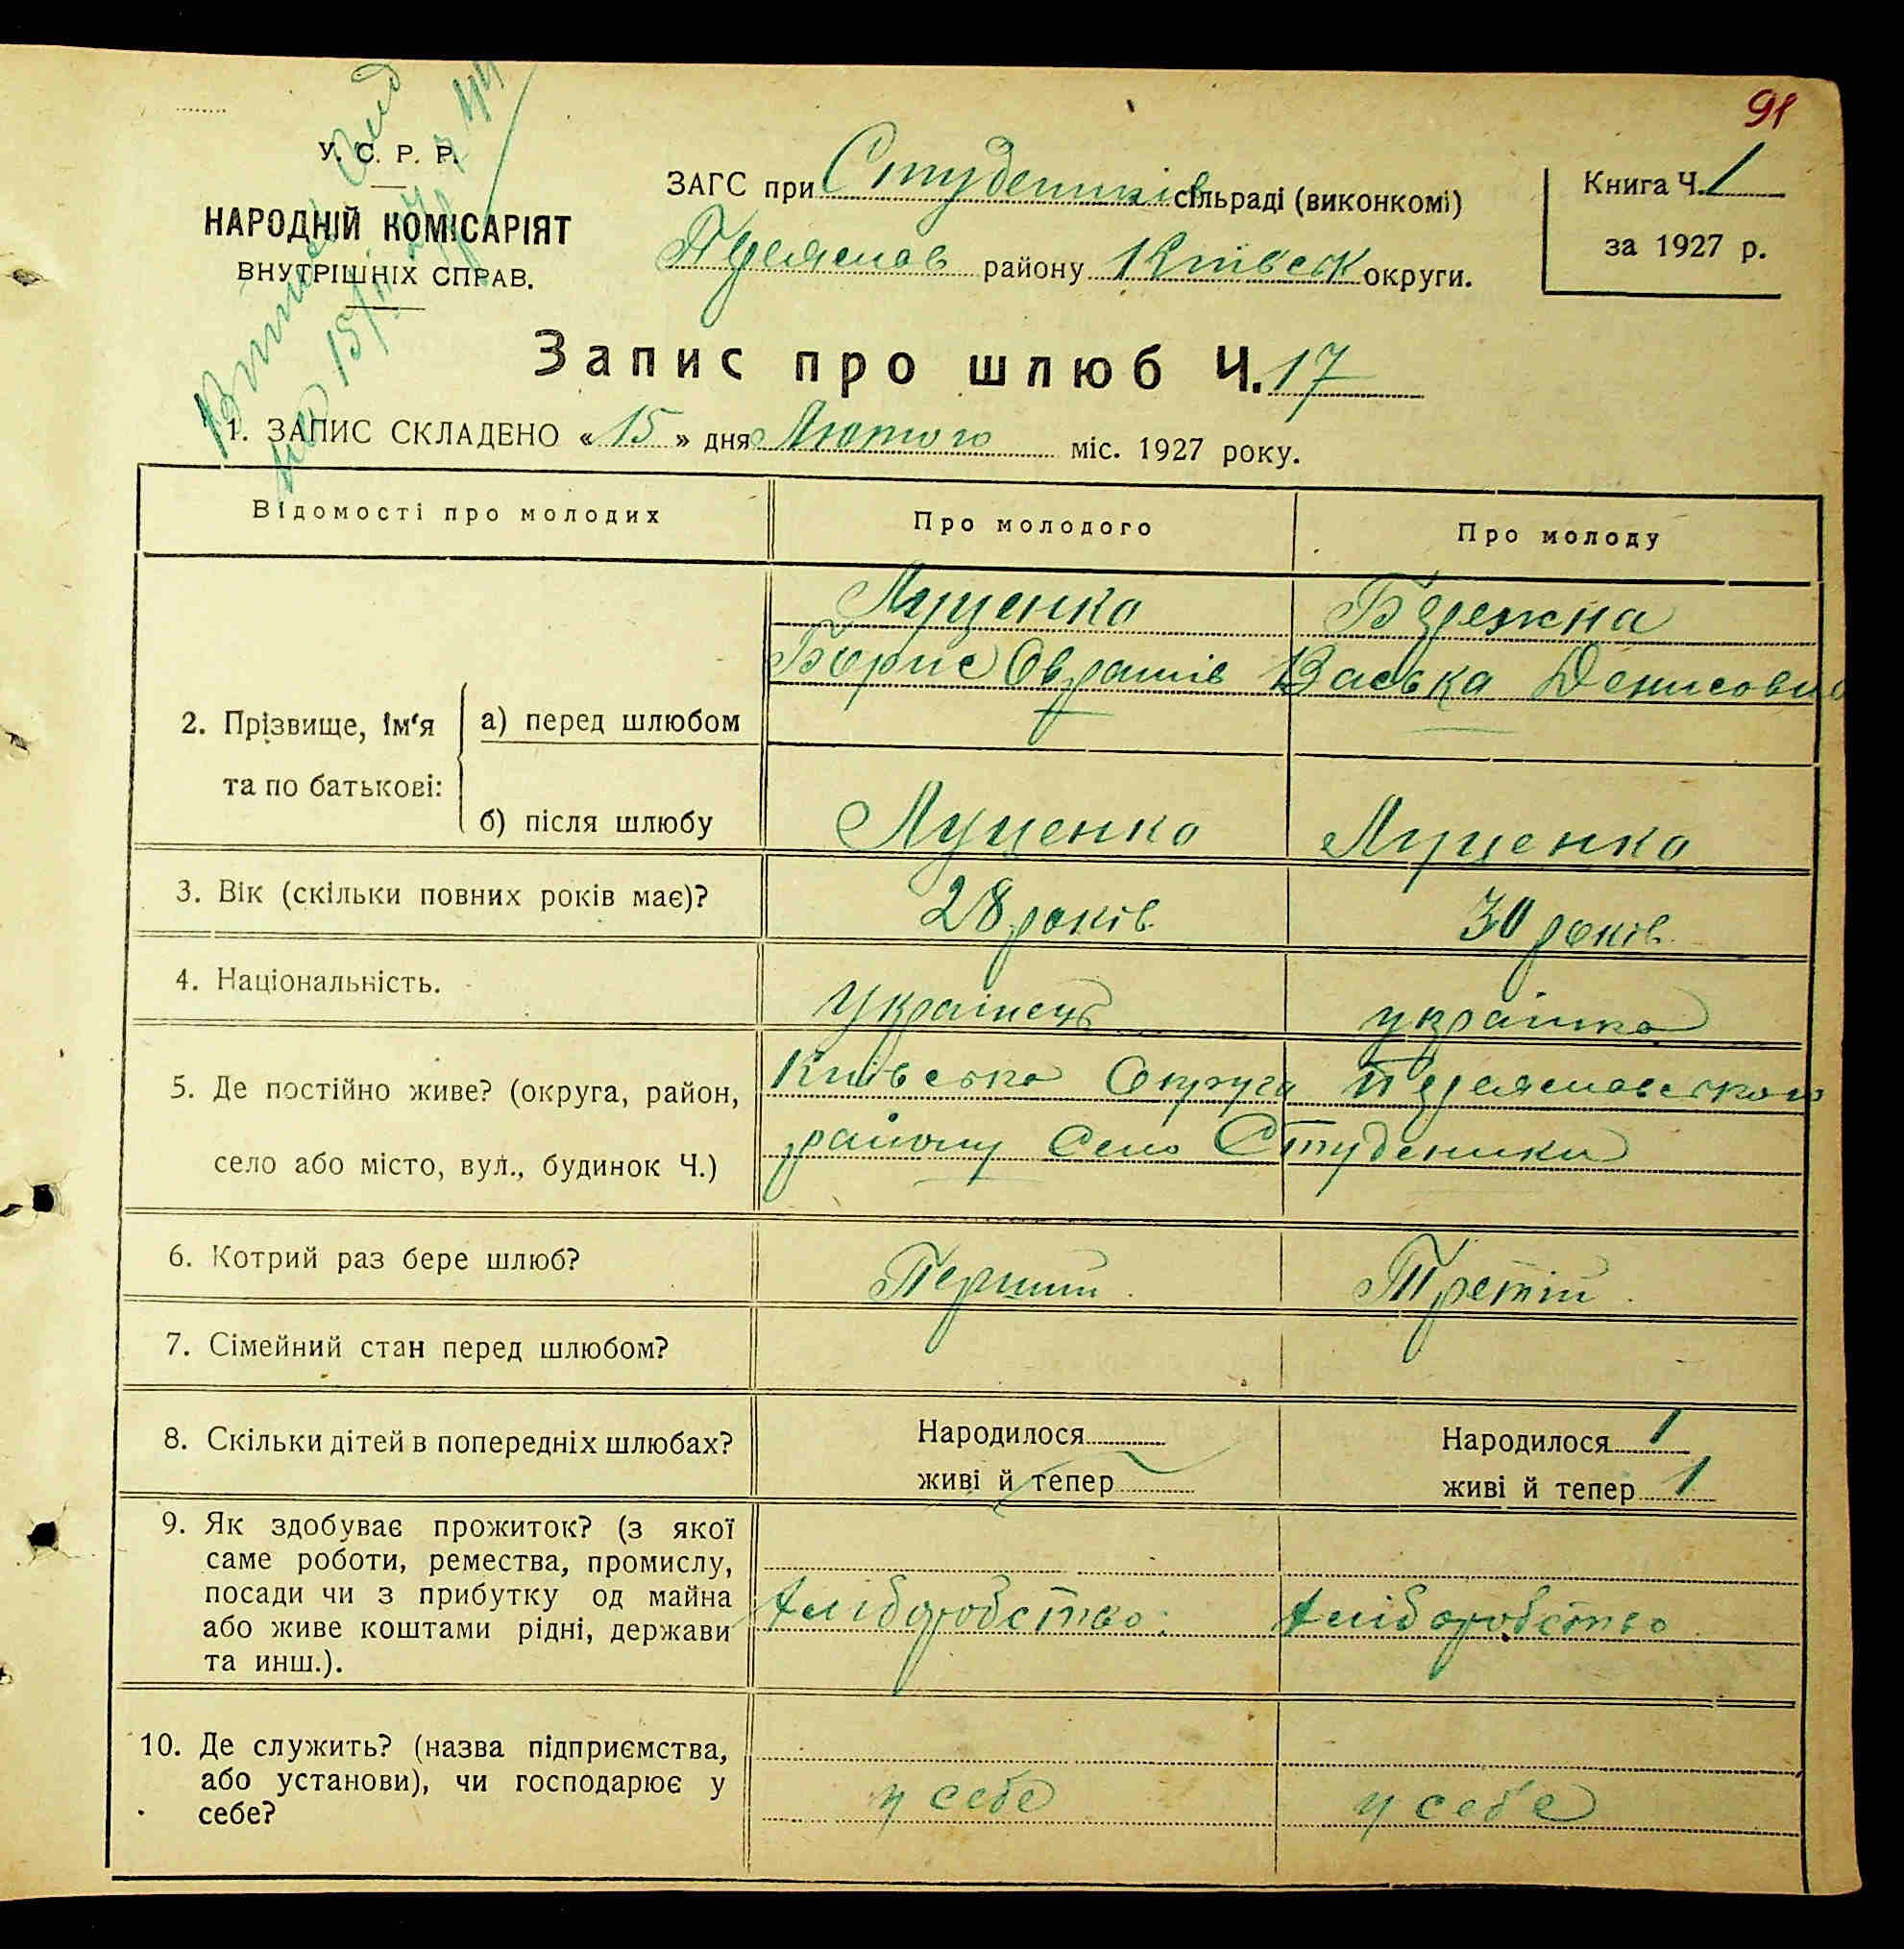 91
У. С. Р. Р.
НАРОДНІЙ КОМІСАРІЯТ
ВНУТРІШНІХ СПРАВ.
ЗАГС при Студеників сільраді (виконкомі)
Переяслав району Київськ округи.
Книга Ч. 1
за 1927 р.
Запис про шлюб Ч. 17
1. ЗАПИС СКЛАДЕНО « 15 » дня Лютого міс. 1927 року.
Відомості про молодих
Про молодого
Про молоду
2. Прізвище, ім‘я та по батькові:
а) перед шлюбом
Луценко
Борис Овратів
Бережна
Васька Денисовна
б) після шлюбу
Луценко
Луценко
3. Вік (скільки повних років має)?
28 років
30 років
4. Національність.
Українець
українка
5. Де постійно живе? (округа, район,
село або місто, вул., будинок Ч.)
Київська Округа Переяславського
району Село Студеники
6. Котрий раз бере шлюб?
Перший
Третій
7. Сімейний стан перед шлюбом?
8. Скільки дітей в попередніх шлюбах?
Народилося
живі й тепер
Народилося 1
живі й тепер 1
9. Як здобуває прожиток? (з якої
саме роботи, ремества, промислу,
посади чи з прибутку од майна
або живе коштами рідні, держави
та инш.).
Хліборобство
Хліборобство
10. Де служить? (назва підприємства,
або установи), чи господарює у
себе?
у себе
у себе